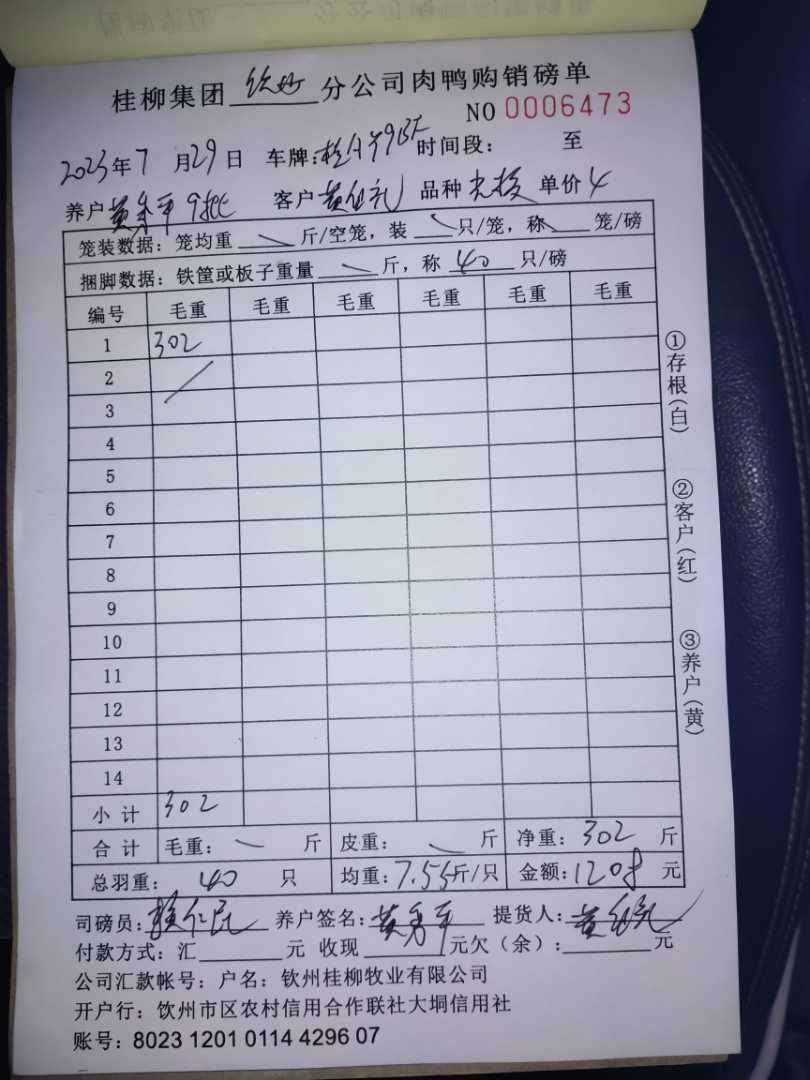 桂柳集团 分公司肉鸭购销磅单
NO 0006473
2023年7月29日 车牌: 时间段: 至
养户 黄 平 9批 客户 黄 礼 品种 单价 4
笼装数据: 笼均重 斤/空笼, 装 只/笼, 称 笼/磅
捆脚数据: 铁筐或板子重量 斤, 称 40 只/磅
编号 毛重 毛重 毛重 毛重 毛重 毛重
1 302
2
3
4
5
6
7
8
9
10
11
12
13
14
小计 302
合计 毛重: 斤 皮重: 斤 净重: 302 斤
总羽重: 40 只 均重: 7.55斤/只 金额: 1208 元
司磅员: 养户签名: 黄 平 提货人: 黄
付款方式: 汇 元 收现 元欠(余): 元
公司汇款帐号: 户名: 钦州桂柳牧业有限公司
开户行: 钦州市区农村信用合作联社大垌信用社
账号: 8023 1201 0114 4296 07
①存根(白)
②客户(红)
③养户(黄)